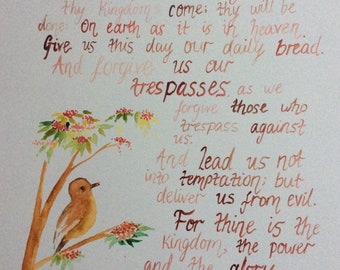 thy Kingdom come; thy will be
done; On earth as it is in heaven.
Give us this day our daily bread.
And forgive us our
trespasses as we
forgive those who
trespass against
us.
And lead us not
into temptation; but
deliver us from evil.
For thine is the
Kingdom, the power
and the glory